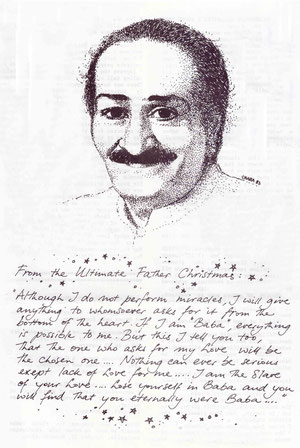 From the Ultimate Father Christmas:
"Although I do not perform miracles, I will give
anything to whomsoever asks for it from the
bottom of the heart. If I am 'Baba', everything
is possible to me. But this I tell you too,
that the one who asks for my Love will be
the chosen one.... Nothing can ever be serious
exept lack of Love for me..... I am the Slave
of your Love..... Lose yourself in Baba and you
will find that you eternally were Baba...."